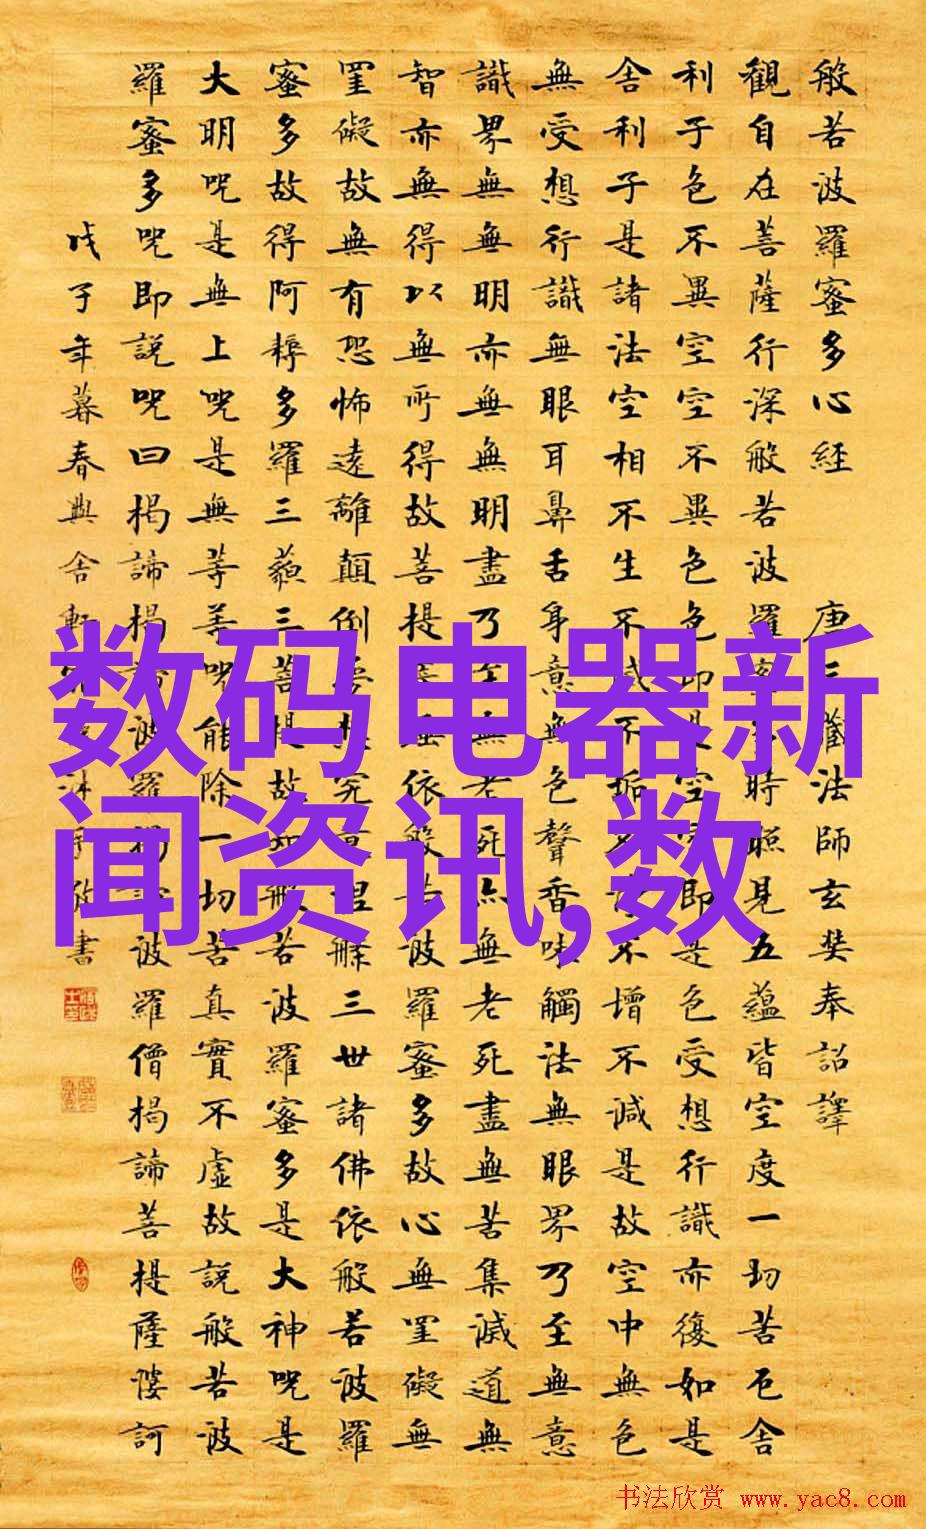 般若波羅蜜多心經 唐三藏法師玄奘奉詔譯
觀自在菩薩行深般若波羅蜜多時照見五蘊皆空度一切苦厄舍
利子色不異空空不異色色即是空空即是色受想行識亦復如是
舍利子是諸法空相不生不滅不垢不淨不增不減是故空中無色
無受想行識無眼耳鼻舌身意無色聲香味觸法無眼界乃至無意
識界無無明亦無無明盡乃至無老死亦無老死盡無苦集滅道無
智亦無得以無所得故菩提薩埵依般若波羅蜜多故心無罣礙無
罣礙故無有恐怖遠離顛倒夢想究竟涅槃三世諸佛依般若波羅
蜜多故得阿耨多羅三藐三菩提故知般若波羅蜜多是大神呪是
大明呪是無上呪是無等等呪能除一切苦真實不虛故說般若波
羅蜜多呪即說呪曰揭諦揭諦波羅揭諦波羅僧揭諦菩提薩婆訶
戊子年暮春興舍軒 書
数码电器新
闻资讯,数
书法欣赏 www.yac8.com